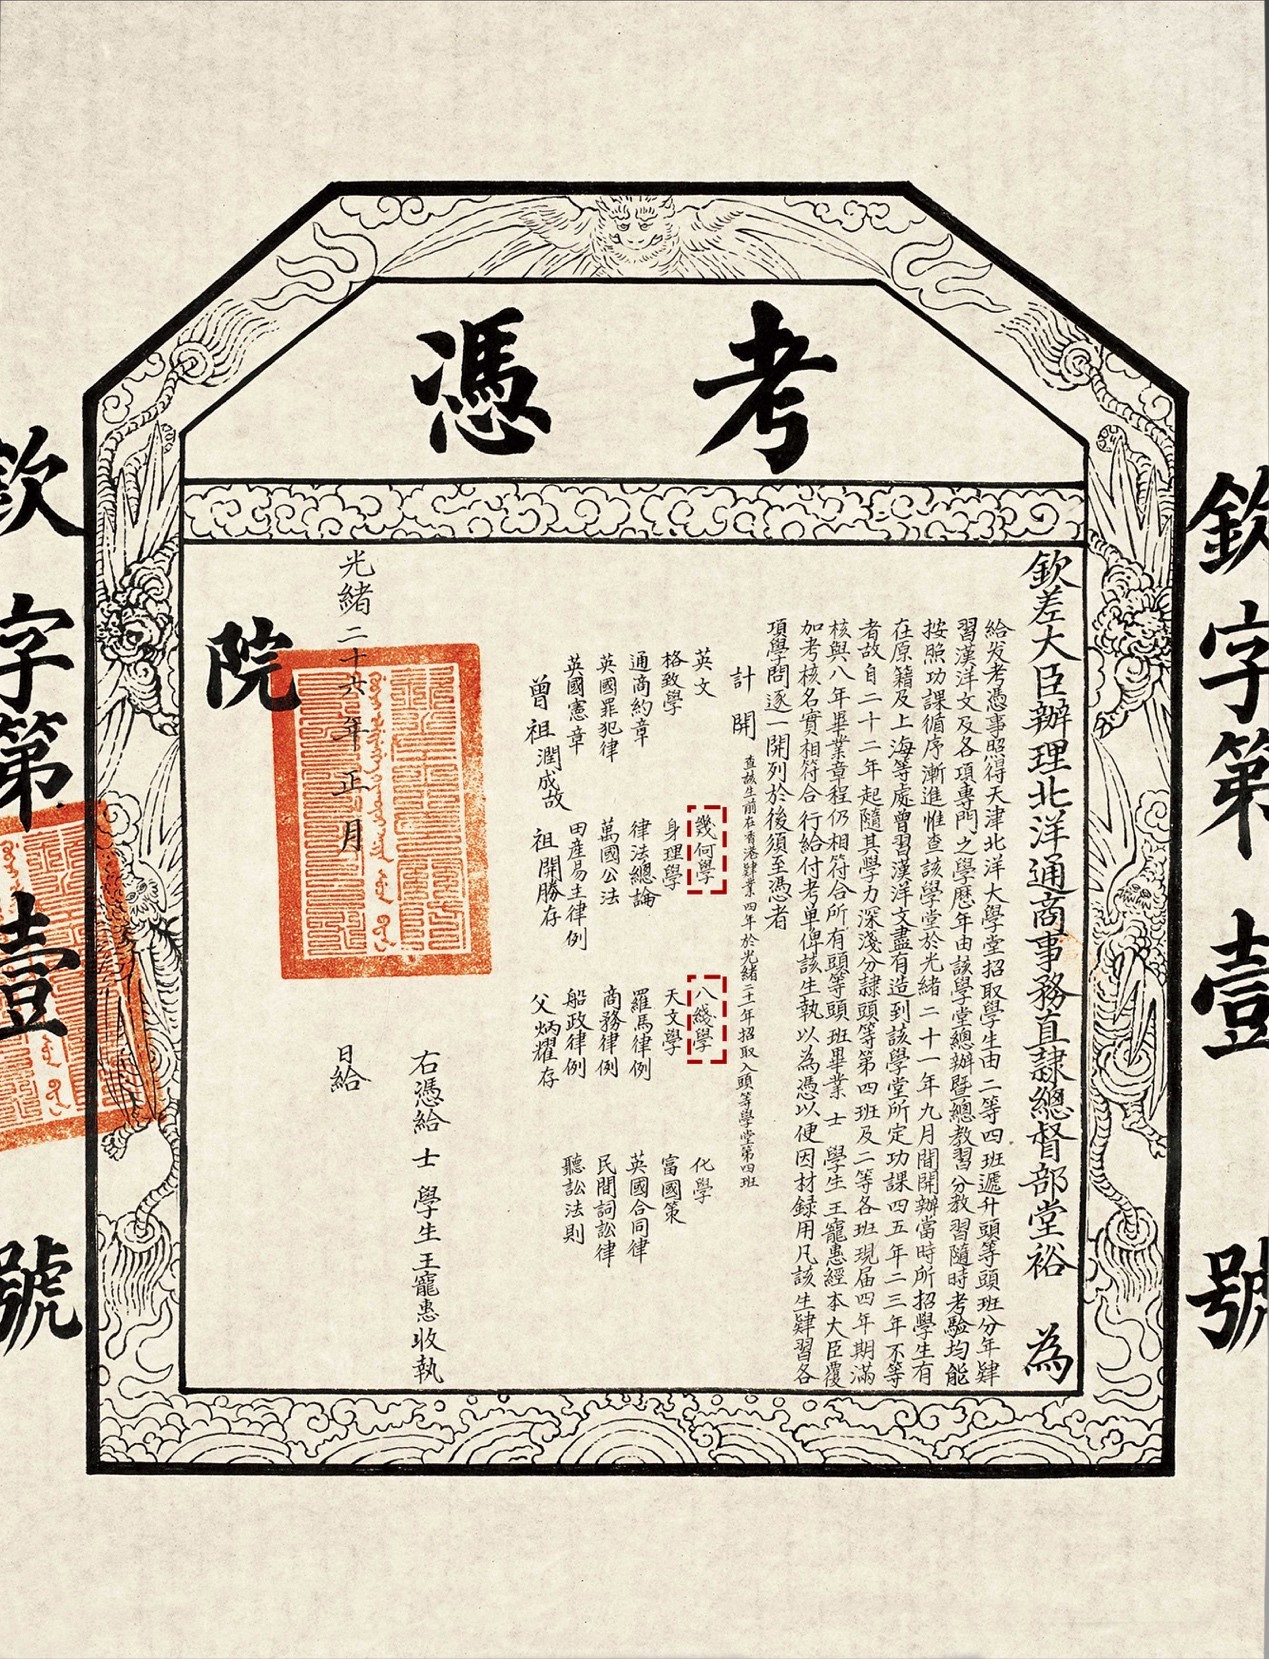 考憑
欽字第壹號
欽差大臣辦理北洋通商事務直隸總督部堂裕 為
給发考憑事照得天津北洋大學堂招取學生由二等四班遞升頭等頭班分年肄
習漢洋文及各項專門之學歷年由該學堂總辦暨總教習分教習隨時考驗均能
按照功課循序漸進惟查該學堂於光緒二十一年九月間開辦當時所招學生有
在原籍及上海等處曾習漢洋文盡有造到該學堂所定功課四五年二三年不等
者故自二十二年起隨其學力深淺分隸頭等第四班及二等各班現届四年期滿
核與八年畢業章程仍相符合所有頭等頭班畢業 士 學生王寵惠經本大臣覆
加考核名實相符合行給付考單俾該生執以為憑以便因材録用凡該生肄習各
項學問逐一開列於後須至憑者
計 開 查該生前在香港肄業四年於光緒二十一年招取入頭等學堂第四班
英文 幾何學 八綫學 化學
格致學 身理學 天文學 富國策
通商約章 律法總論 羅馬律例 英國合同律
英國罪犯律 萬國公法 商務律例 民間詞訟律
英國憲章 田產易主律例 船政律例 聽訟法則
曾祖潤成故 祖開勝存 父炳耀存
右憑給 士 學生王寵惠收執
光緒二十六年正月 日給
院
欽字第壹號